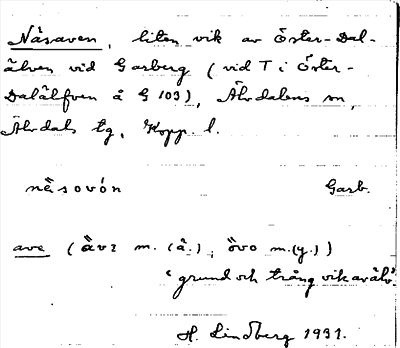 Näsaven, liten vik av Öster-Dal-
älven vid Garberg (vid T i Öster-
Dalälfven å G 103), Älvdalens sn,
Älvdals tg, Kopp. l.
näsovón Garb.
ave (àvɩ m. (ä.), òvo m.(y.))
'grund och trång vik av älv'.
H. Lindberg 1931.